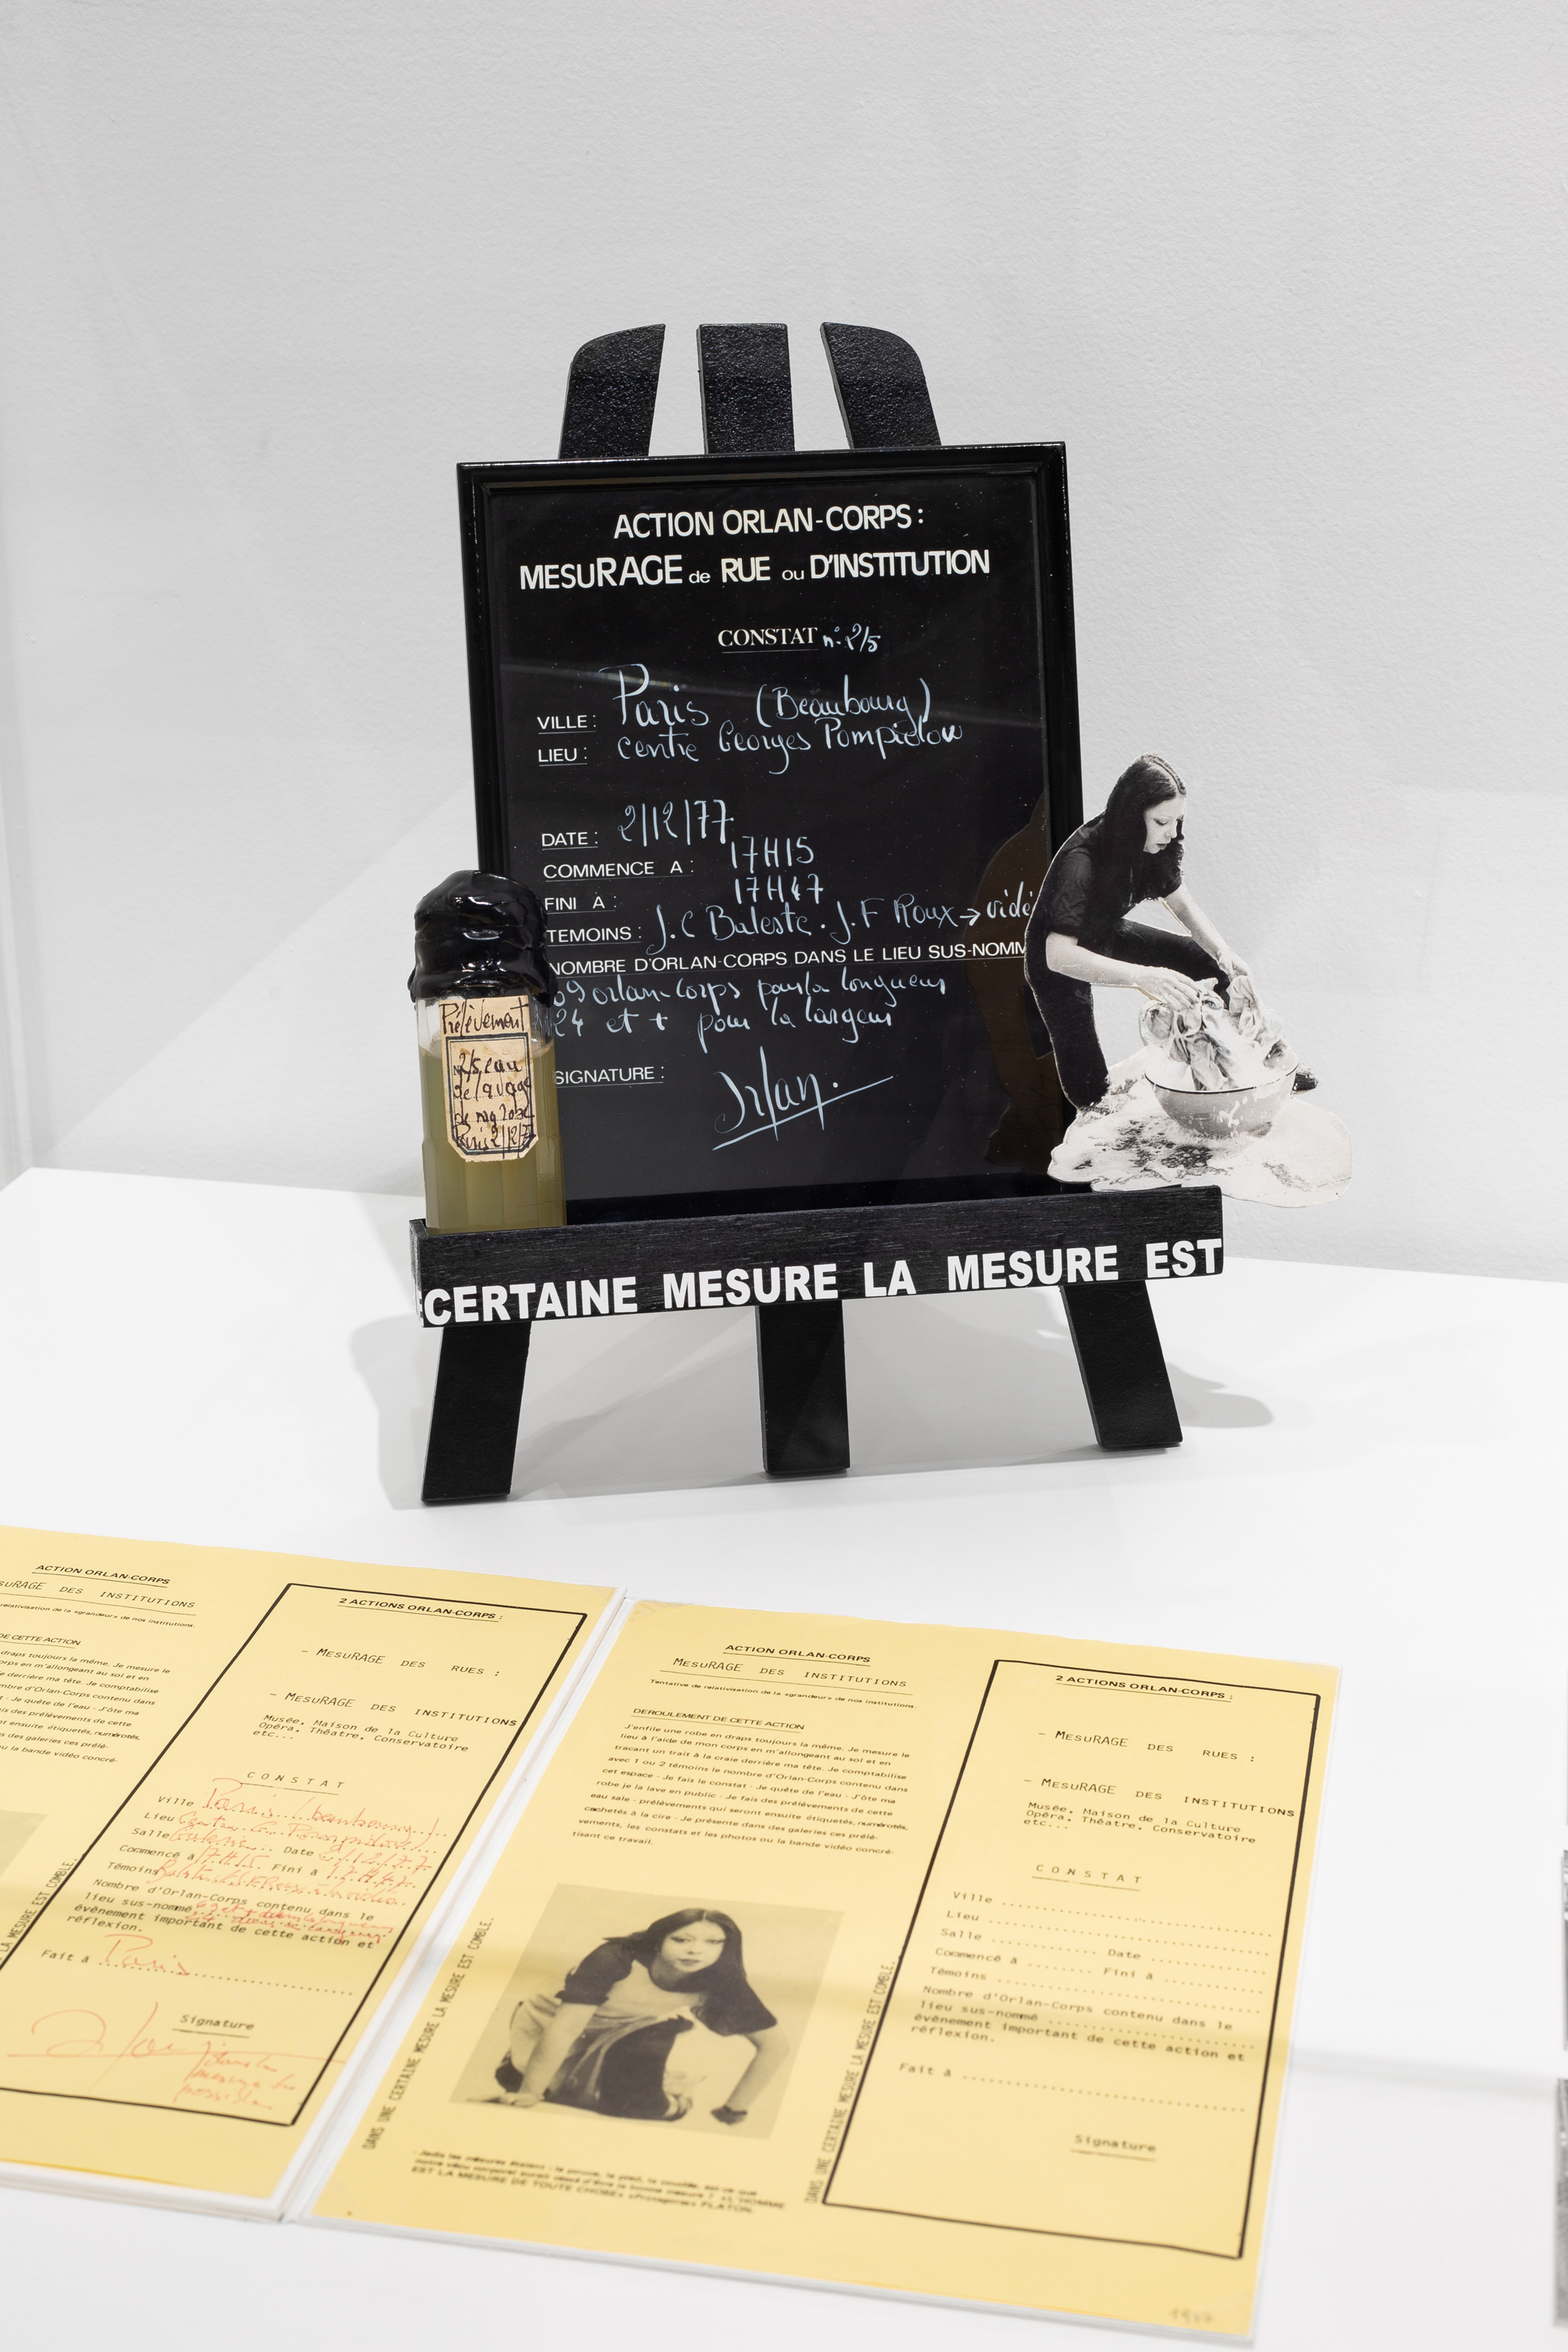 ACTION ORLAN-CORPS :
MESURAGE de RUE ou D'INSTITUTION
CONSTAT n° 2/5
VILLE : Paris (Beaubourg)
LIEU : centre Georges Pompidou
DATE : 2/12/77
COMMENCE A : 17H15
FINI A : 17H47
TEMOINS : J.C Baleste . J.F Roux → vidé
NOMBRE D'ORLAN-CORPS DANS LE LIEU SUS-NOMM
09 orlan-corps pour la longueur
24 et + pour la largeur
SIGNATURE : Orlan.
Prélèvement
2/5, eau
de lavage
de ma robe
Paris 2/12/7
CERTAINE MESURE LA MESURE EST
ACTION ORLAN-CORPS
SURAGE DES INSTITUTIONS
relativisation de la sgrandeurs de nos institutions.
DE CETTE ACTION
draps toujours la même. Je mesure le
corps en m'allongeant au sol et en
e derrière ma tête. Je comptabilise
mbre d'Orlan-Corps contenu dans
- Je quête de l'eau - J'ôte ma
is des prélèvements de cette
nt ensuite étiquetés, numérotés,
des galeries ces prélè-
ou la bande vidéo concré-
LA MESURE EST COMBLE.
2 ACTIONS ORLAN-CORPS :
- MESURAGE DES RUES :
- MESURAGE DES INSTITUTIONS
Musée, Maison de la Culture
Opéra, Théatre, Conservatoire
etc...
CONSTAT
Ville Paris (beaubourg)
Lieu Centre G. Pompidou
Salle Date 2/12/77
Commencé à 17H15 Fini à 17H47
Témoins
Nombre d'Orlan-Corps contenu dans le
lieu sus-nommé
évènement important de cette action et
réflexion.
Fait à Paris
Signature
Orlan
ACTION ORLAN-CORPS
MESURAGE DES INSTITUTIONS
Tentative de relativisation de la sgrandeurs de nos institutions.
DEROULEMENT DE CETTE ACTION
J'enfile une robe en draps toujours la même. Je mesure le
lieu à l'aide de mon corps en m'allongeant au sol et en
tracant un trait à la craie derrière ma tête. Je comptabilise
avec 1 ou 2 témoins le nombre d'Orlan-Corps contenu dans
cet espace - Je fais le constat - Je quête de l'eau - J'ôte ma
robe je la lave en public - Je fais des prélèvements de cette
eau sale - prélèvements qui seront ensuite étiquetés, numérotés,
cachetés à la cire - Je présente dans des galeries ces prélè-
vements, les constats et les photos ou la bande vidéo concré-
tisant ce travail.
DANS UNE CERTAINE MESURE LA MESURE EST COMBLE.
EST LA MESURE DE TOUTE CHOSE» «Protagoras» PLATON.
DANS UNE CERTAINE MESURE LA MESURE EST COMBLE.
2 ACTIONS ORLAN-CORPS :
- MESURAGE DES RUES :
- MESURAGE DES INSTITUTIONS
Musée, Maison de la Culture
Opéra, Théatre, Conservatoire
etc...
CONSTAT
Ville
Lieu
Salle Date
Commencé à Fini à
Témoins
Nombre d'Orlan-Corps contenu dans le
lieu sus-nommé
évènement important de cette action et
réflexion.
Fait à
Signature